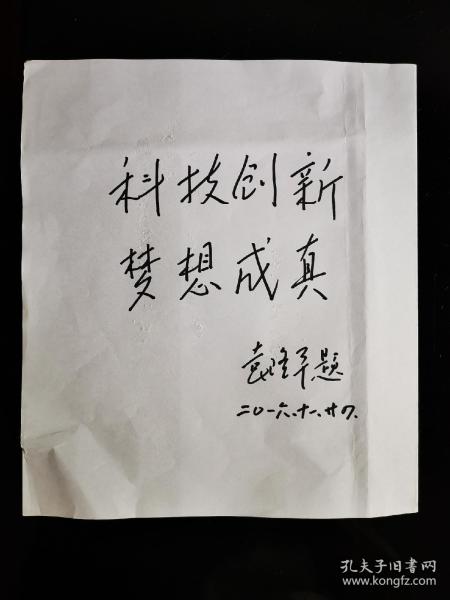 科技创新
梦想成真
袁隆平题
二〇一六、十一、廿四.
孔夫子旧书网
www.kongfz.com